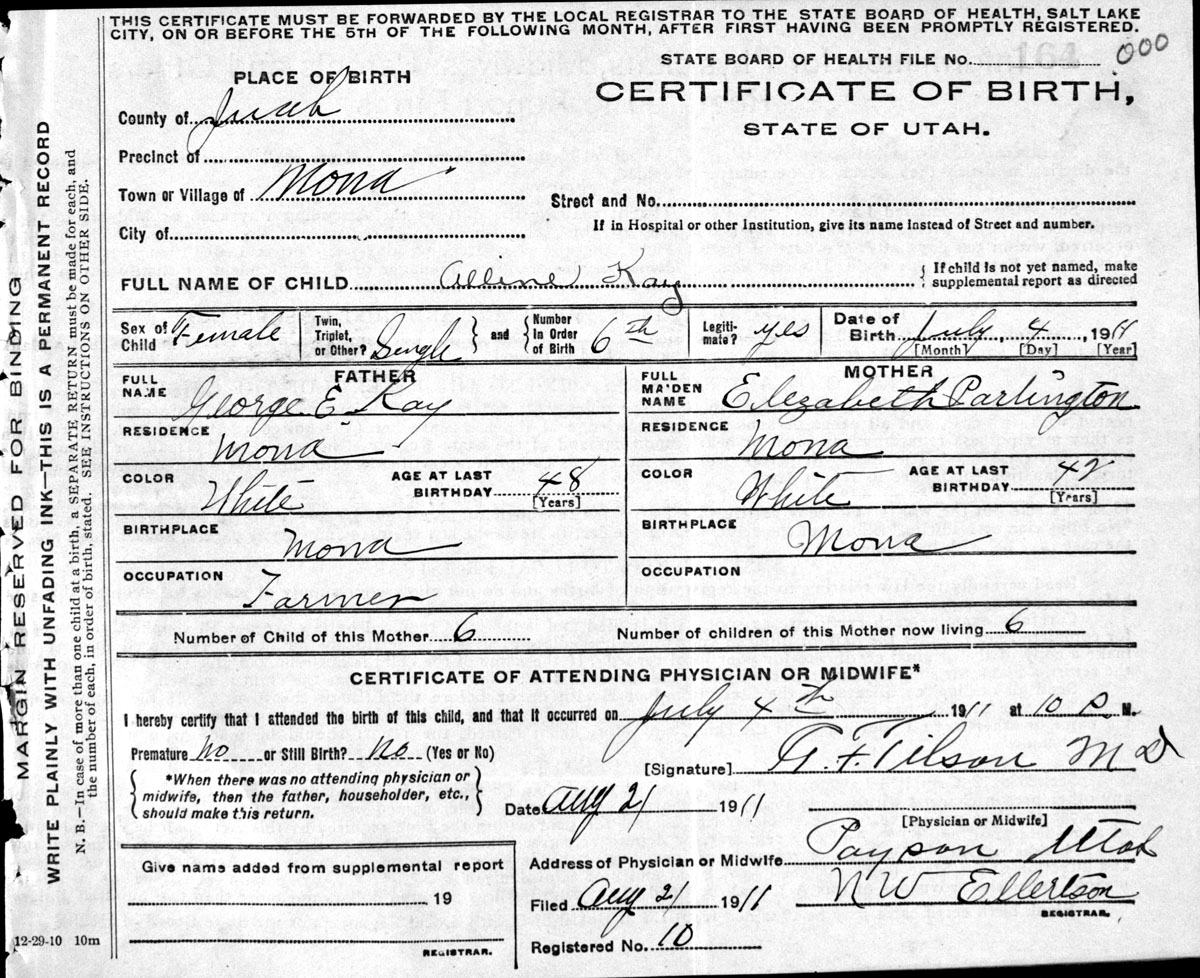 THIS CERTIFICATE MUST BE FORWARDED BY THE LOCAL REGISTRAR TO THE STATE BOARD OF HEALTH, SALT LAKE
CITY, ON OR BEFORE THE 5TH OF THE FOLLOWING MONTH, AFTER FIRST HAVING BEEN PROMPTLY REGISTERED.
PLACE OF BIRTH
County of Juab
Precinct of
Town or Village of Mona
City of
STATE BOARD OF HEALTH FILE No. 164 000
CERTIFICATE OF BIRTH,
STATE OF UTAH.
Street and No.
If in Hospital or other Institution, give its name instead of Street and number.
FULL NAME OF CHILD Alline Kay
If child is not yet named, make
supplemental report as directed
Sex of Child Female
Twin, Triplet, or Other? Single
and Number In Order of Birth 6th
Legitimate? yes
Date of Birth July 4, 1911
[Month] [Day] [Year]
FATHER
FULL NAME George E. Kay
RESIDENCE Mona
COLOR White
AGE AT LAST BIRTHDAY 48
[Years]
BIRTHPLACE Mona
OCCUPATION Farmer
MOTHER
FULL MAIDEN NAME Elezabeth Partington
RESIDENCE Mona
COLOR White
AGE AT LAST BIRTHDAY 42
[Years]
BIRTHPLACE Mona
OCCUPATION
Number of Child of this Mother 6
Number of children of this Mother now living 6
CERTIFICATE OF ATTENDING PHYSICIAN OR MIDWIFE*
I hereby certify that I attended the birth of this child, and that it occurred on July 4th 1911 at 10 P. M.
Premature no or Still Birth? No (Yes or No)
*When there was no attending physician or
midwife, then the father, householder, etc.,
should make this return.
[Signature] A. F. Tilson M D
Date Aug 21 1911
[Physician or Midwife]
Address of Physician or Midwife Payson Utah
Filed Aug 21 1911
N W Ellertson
REGISTRAR.
Registered No. 10
Give name added from supplemental report
19
REGISTRAR.
12-29-10 10m
MARGIN RESERVED FOR BINDING
WRITE PLAINLY WITH UNFADING INK—THIS IS A PERMANENT RECORD
N. B.—In case of more than one child at a birth, a SEPARATE RETURN must be made for each, and
the number of each, in order of birth, stated. SEE INSTRUCTIONS ON OTHER SIDE.